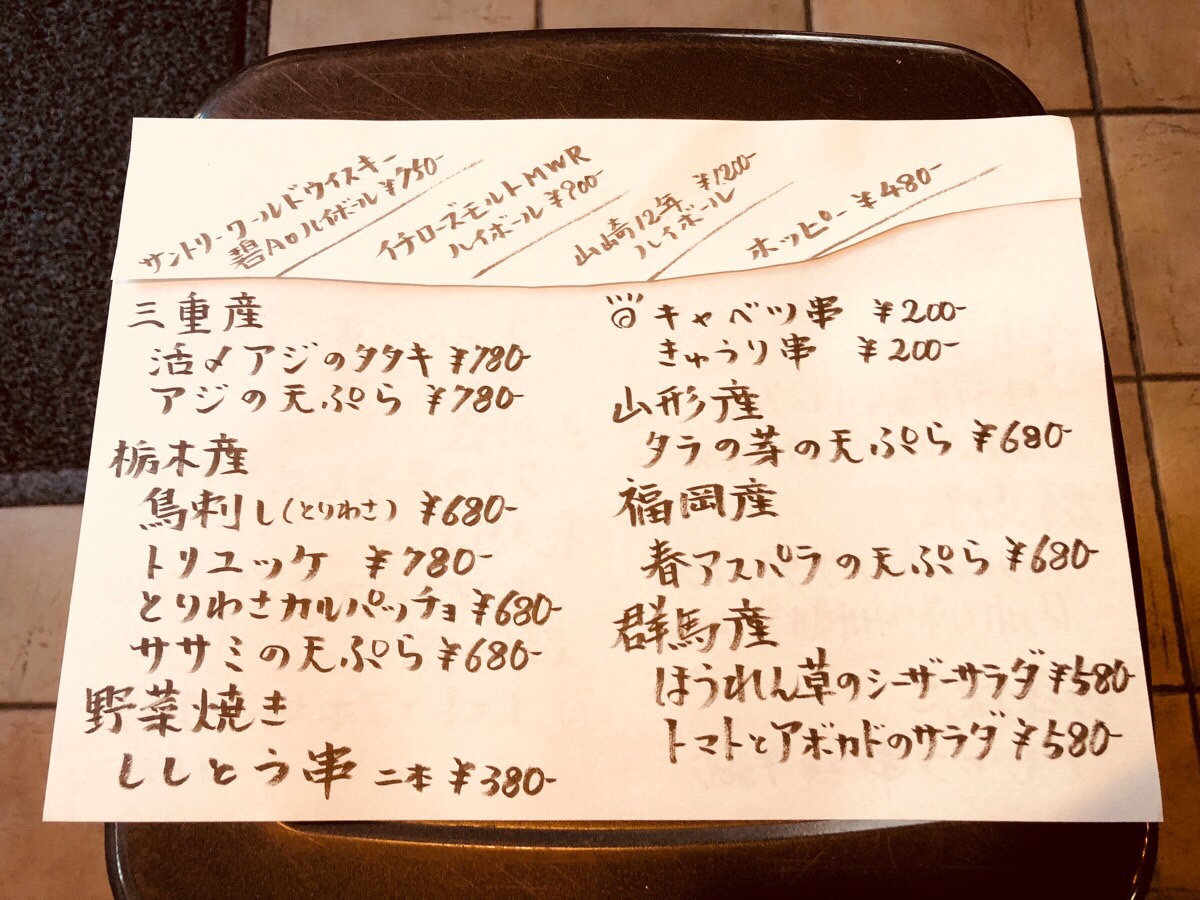 サントリーワールドウイスキー
碧Aoハイボール ¥750-
イチローズモルトMWR
ハイボール ¥900-
山崎12年 ¥1200-
ハイボール
ホッピー ¥480-
三重産
活〆アジのタタキ ¥780-
アジの天ぷら ¥780-
栃木産
鳥刺し(とりわさ) ¥680-
トリユッケ ¥780-
とりわさカルパッチョ ¥680-
ササミの天ぷら ¥680-
野菜焼き
ししとう串 二本 ¥380-
キャベツ串 ¥200-
きゅうり串 ¥200-
山形産
タラの芽の天ぷら ¥680-
福岡産
春アスパラの天ぷら ¥680-
群馬産
ほうれん草のシーザーサラダ ¥580-
トマトとアボカドのサラダ ¥580-